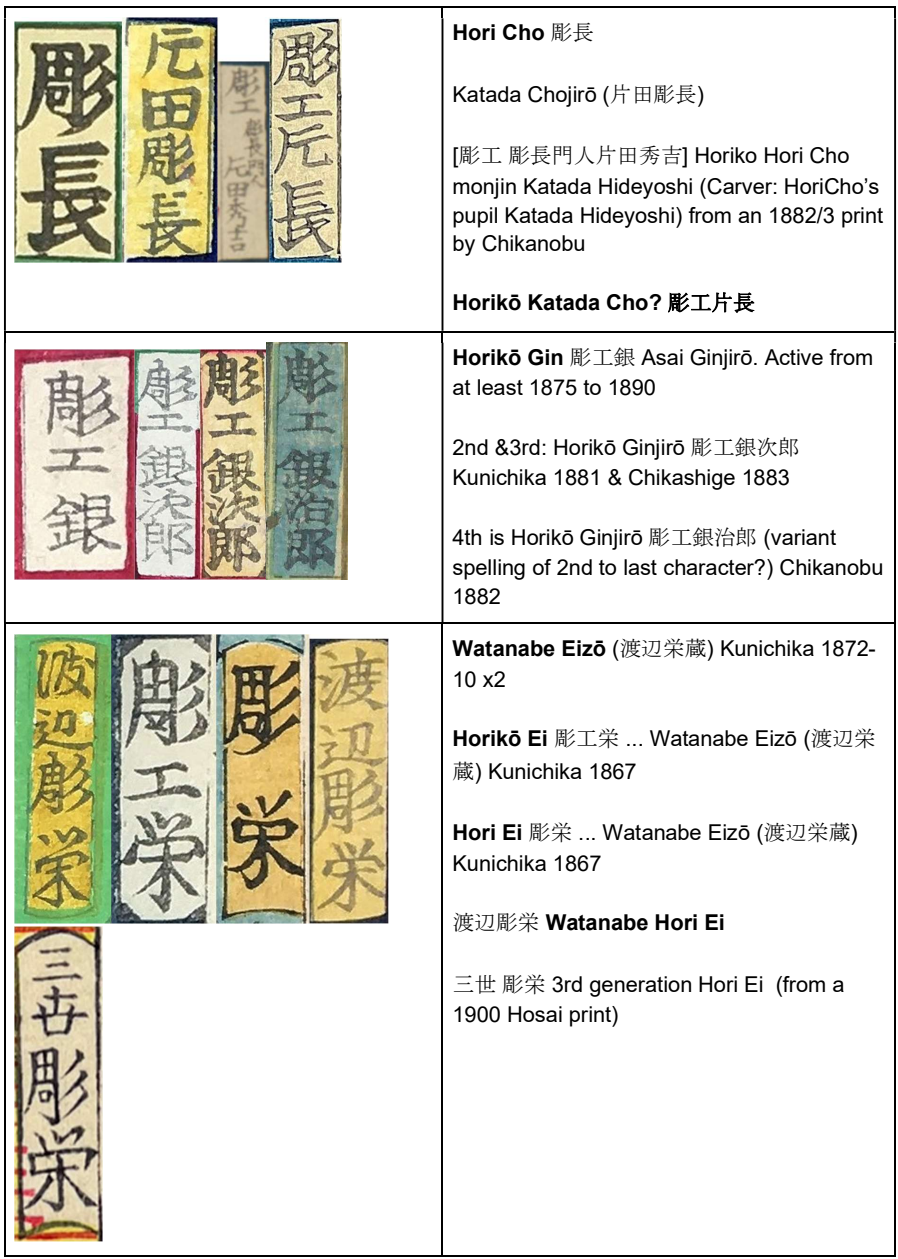 彫長
片田彫長
彫工 彫長門人 片田秀吉
彫工片長
Hori Cho 彫長
Katada Chojirō (片田彫長)
[彫工 彫長門人片田秀吉] Horiko Hori Cho
monjin Katada Hideyoshi (Carver: HoriCho’s
pupil Katada Hideyoshi) from an 1882/3 print
by Chikanobu
Horikō Katada Cho? 彫工片長
彫工銀
彫工銀次郎
彫工銀次郎
彫工銀治郎
Horikō Gin 彫工銀 Asai Ginjirō. Active from
at least 1875 to 1890
2nd &3rd: Horikō Ginjirō 彫工銀次郎
Kunichika 1881 & Chikashige 1883
4th is Horikō Ginjirō 彫工銀治郎 (variant
spelling of 2nd to last character?) Chikanobu
1882
渡辺彫栄
彫工栄
彫栄
渡辺彫栄
三世彫栄
Watanabe Eizō (渡辺栄蔵) Kunichika 1872-
10 x2
Horikō Ei 彫工栄 ... Watanabe Eizō (渡辺栄
蔵) Kunichika 1867
Hori Ei 彫栄 ... Watanabe Eizō (渡辺栄蔵)
Kunichika 1867
渡辺彫栄 Watanabe Hori Ei
三世 彫栄 3rd generation Hori Ei (from a
1900 Hosai print)